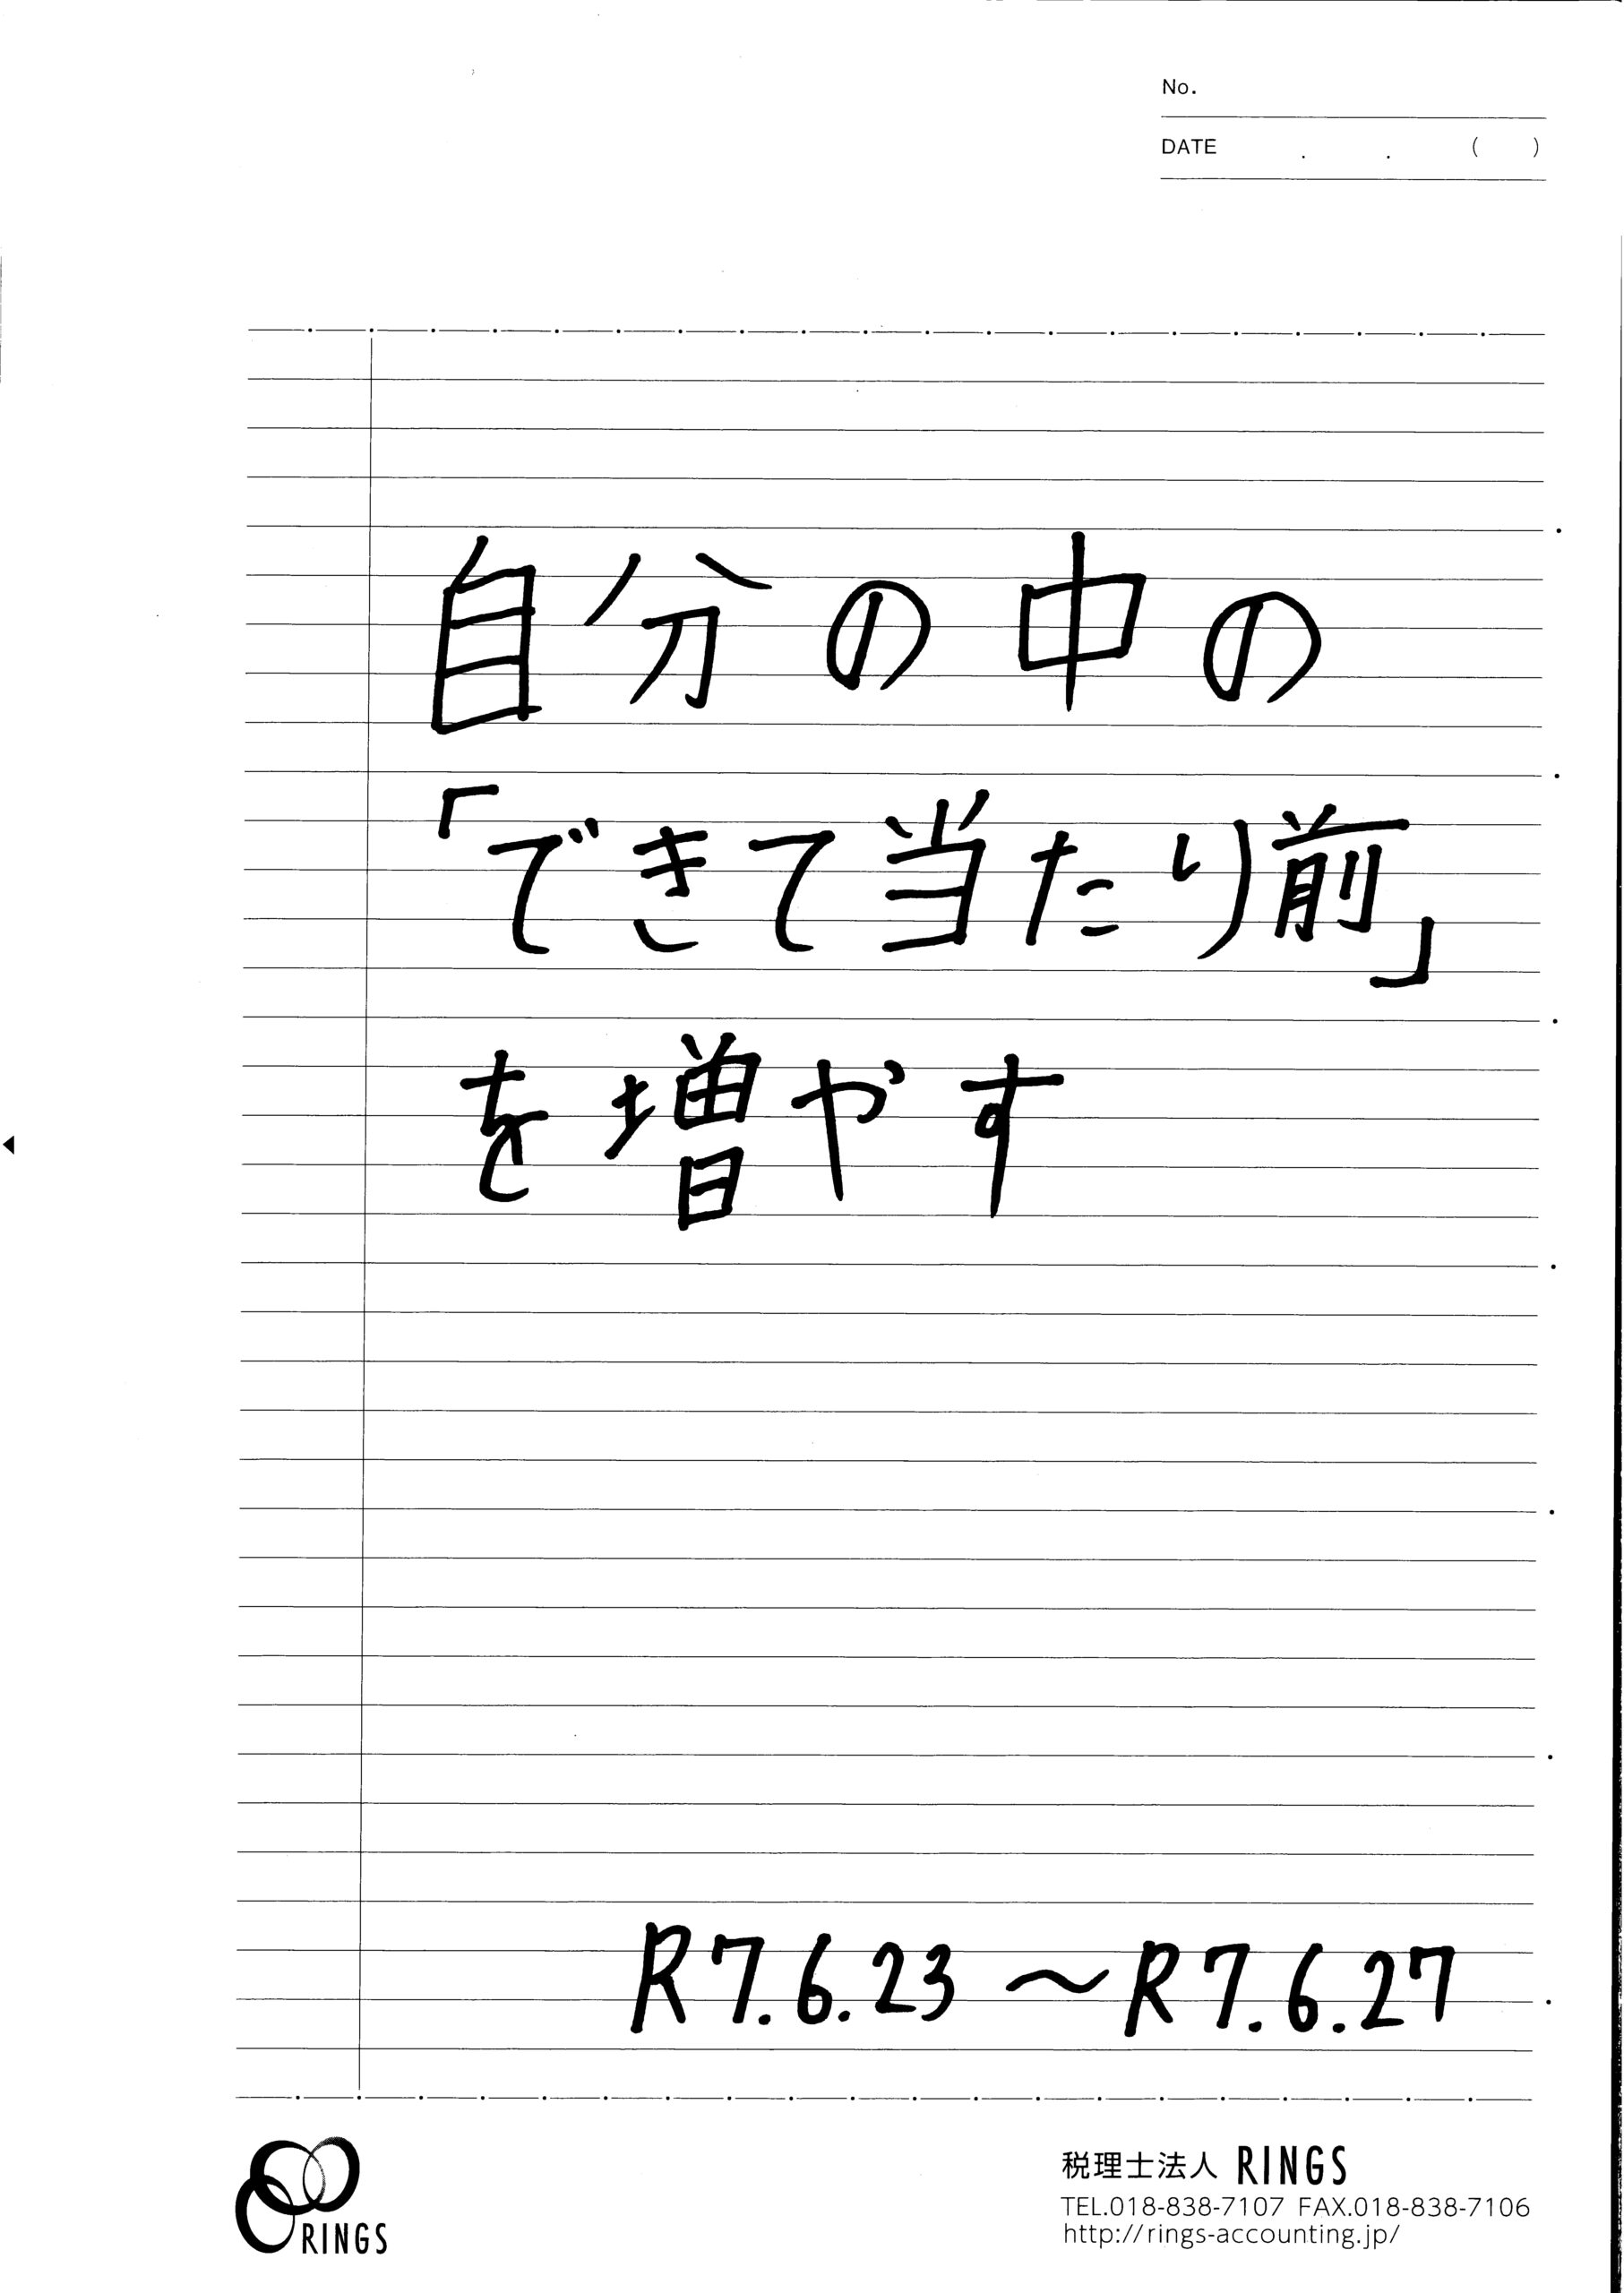 No.
DATE . . ( )
自分の中の
「できて当たり前」
を増やす
R7.6.23〜R7.6.27
RINGS
税理士法人 RINGS
TEL.018-838-7107 FAX.018-838-7106
http://rings-accounting.jp/